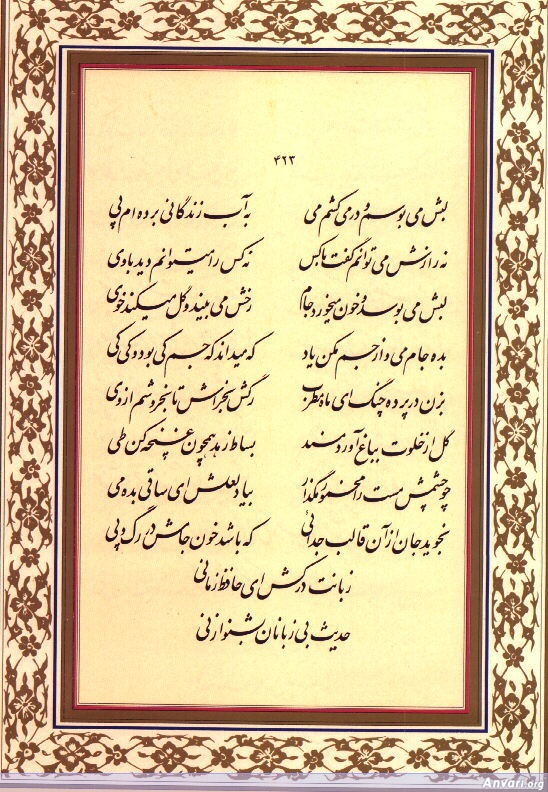 ۴۲۳
لبش می بوسم و در می کشم می به آب زندگانی برده ام پی
نه رازش می توانم گفت با کس نه کس را میتوانم دید با وی
لبش می بوسد و خون میخورد جام رخش می بیند و گل میکند خوی
بده جام می و از جم مکن یاد که میداند که جم کی بود و کی کی
بزن در پرده چنگ ای ماه مطرب رگش بخراش تا بخروشم از وی
گل از خلوت بباغ آورد مسند بساط زهد همچون غنچه کن طی
چو چشمش مست را مخمور مگذار بیاد لعلش ای ساقی بده می
نجوید جان از آن قالب جدائی که باشد خون جامش در رگ و پی
زبانت درکش ای حافظ زمانی
حدیث بی زبانان بشنو از نی
Anvari.org